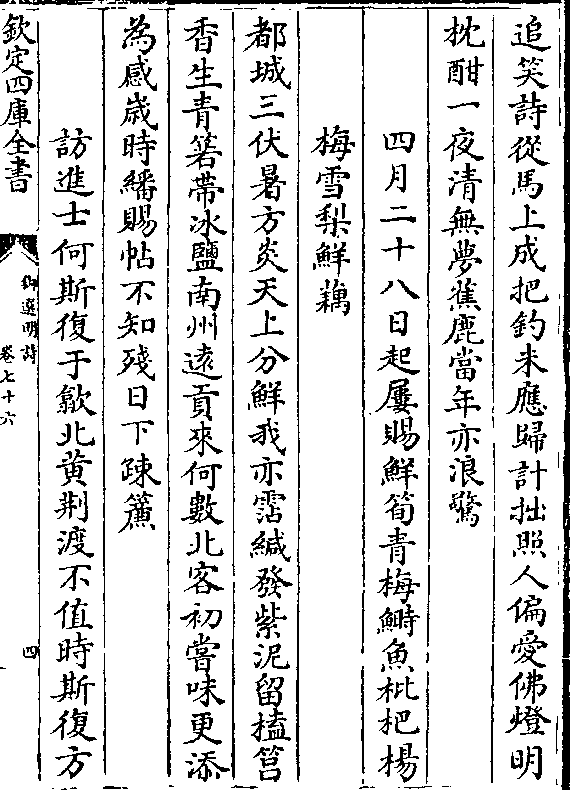 追笑詩從馬上成把釣未應歸計拙照人偏愛佛燈明
枕酣一夜清無夢蕉鹿當年亦浪驚
四月二十八日起屢賜鮮筍青梅鰣魚枇杷楊
梅雪梨鮮藕
都城三伏暑方炎天上分鮮我亦霑緘發紫泥留榼筥
香生青箬帶冰鹽南州遠貢來何數北客初嘗味更添
為感歲時繙賜帖不知殘日下疎簾
訪進士何斯復于歙北黄荆渡不值時斯復方
欽定四庫全書
御選明詩
卷七十六
四